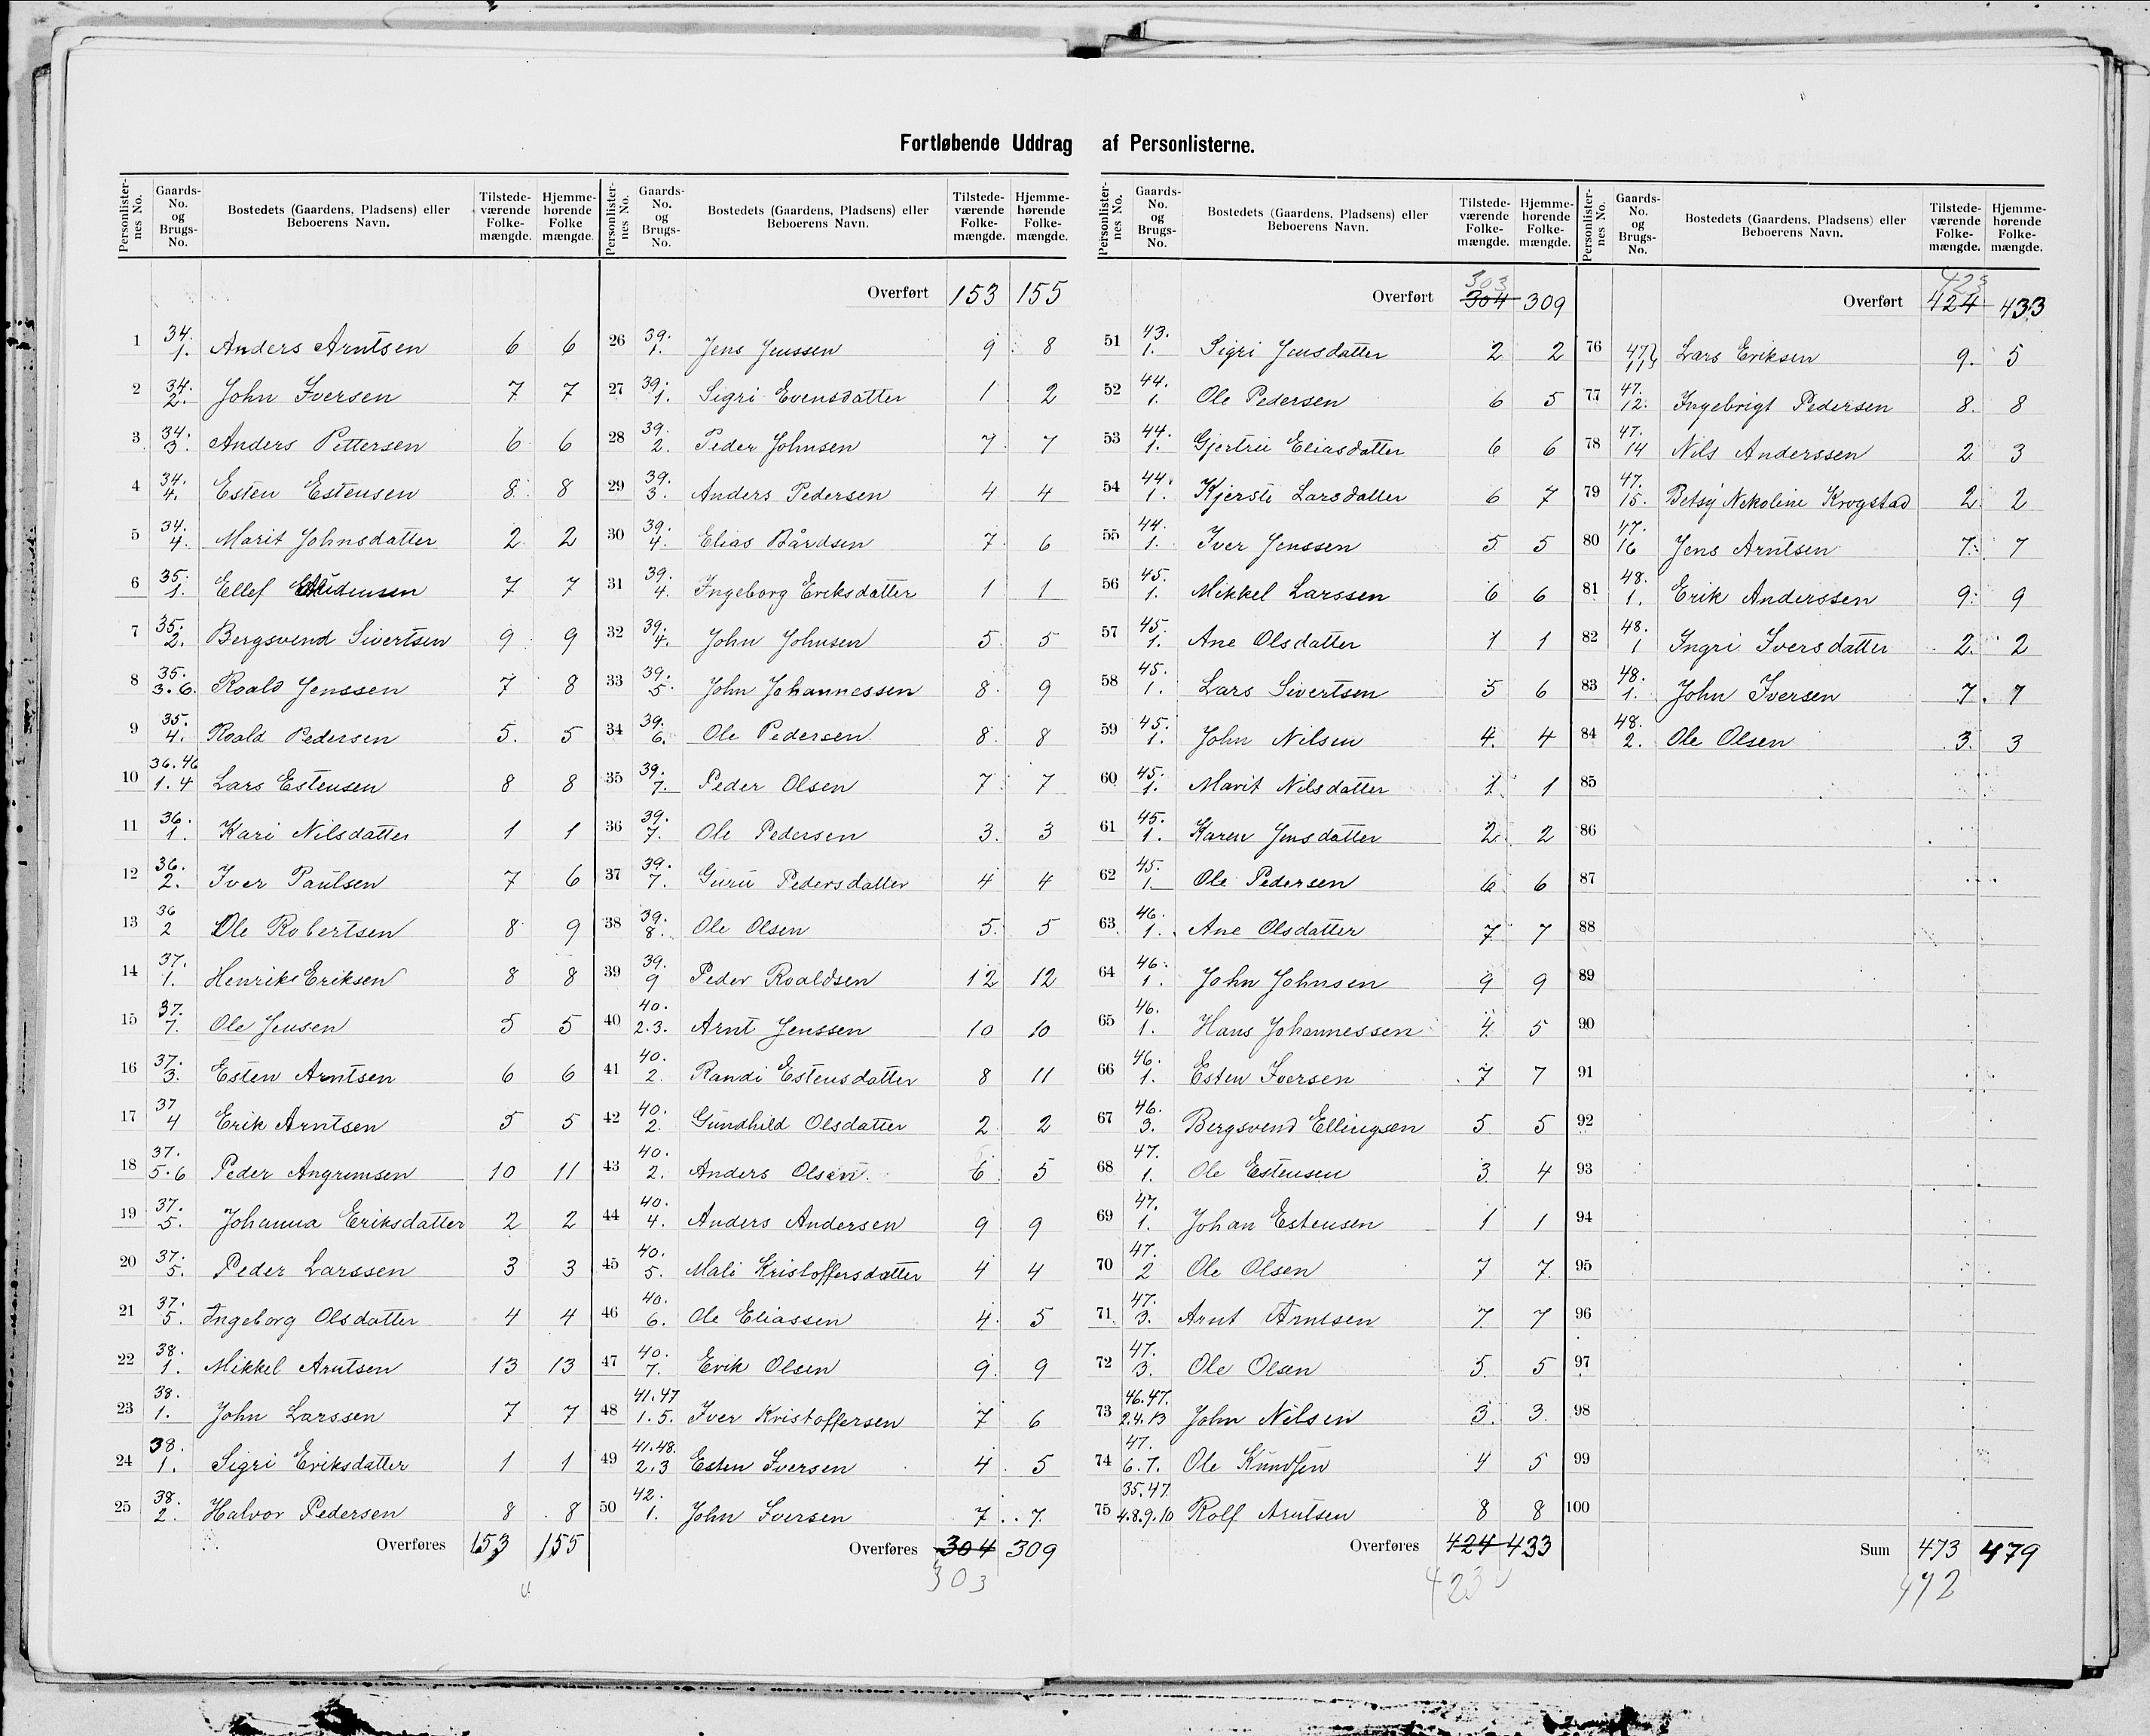 Fortløbende Uddrag af Personlisterne.
Personlisternes No. Gaards-No. og Brugs-No. Bostedets (Gaardens, Pladsens) eller Beboerens Navn. Tilstedeværende Folkemængde. Hjemmehørende Folke mængde.
1 34. 1. Anders Arntsen 6 6
2 34. 2. John Iversen 7 7
3 34. 3. Anders Pettersen 6 6
4 34. 4. Esten Estensen 8 8
5 34. 4. Marit Johnsdatter 2 2
6 35. 1. Ellef 7 7
7 35. 2. Bergsvend Sivertsen 9 9
8 35. 3.6. Roald Jenssen 7 8
9 35. 4. Roald Pedersen 5. 5
10 36.46 1.4 Lars Estensen 8 8
11 36. 1. Kari Nilsdatter 1 1
12 36. 2. Iver Paulsen 7 6
13 36 2 Ole Robertsen 8 9
14 37. 1. Henrik Eriksen 8 8
15 37. 7. Ole Jensen 5 5
16 37. 3. Esten Arntsen 6 6
17 37 4 Erik Arntsen 5 5
18 37. 5.6 Peder Angrimsen 10 11
19 37. 5. Johanna Eriksdatter 2 2
20 37. 5. Peder Larssen 3 3
21 37. 5. Ingeborg Olsdatter 4 4
22 38. 1. Mikkel Arntsen 13 13
23 38. 1. John Larssen 7 7
24 38. 1. Sigri Eriksdatter 1 1
25 38. 2. Halvor Pedersen 8 8
Overføres 153 155
Personlisternes No. Gaards-No. og Brugs-No. Bostedets (Gaardens, Pladsens) eller Beboerens Navn. Tilstedeværende Folkemængde. Hjemmehørende Folkemængde.
Overført 153 155
26 39. 1. Jens Jenssen 9 8
27 39. 1. Sigri Evensdatter 1 2
28 39. 2. Peder Johnsen 7 7
29 39. 3. Anders Pedersen 4 4
30 39. 4. Elias Bårdsen 7 6
31 39. 4. Ingeborg Eriksdatter 1 1
32 39. 4. John Johnsen 5 5
33 39. 5. John Johannessen 8 9
34 39. 6. Ole Pedersen 8 8
35 39. 7. Peder Olsen 7 7
36 39. 7. Ole Pedersen 3. 3
37 39. 7. Guru Pedersdatter 4 4
38 39. 8. Ole Olsen 5. 5
39 39. 9 Peder Roaldsen 12 12
40 40. 2.3. Arnt Jenssen 10 10
41 40. 2. Randi Estensdatter 8 11
42 40. 2. Gundhild Olsdatter 2 2
43 40. 2. Anders Olsen. 6 5
44 40. 4. Anders Andersen 9 9
45 40. 5. Mali Kristoffersdatter 4 4
46 40. 6. Ole Eliassen 4. 5
47 40. 7. Erik Olsen 9. 9
48 41.47 1.5. Iver Kristoffersen 7 6
49 41.48. 2.3 Esten Iversen 4. 5
50 42. 1. John Iversen 7. 7.
Overføres 304 309
303
Personlisternes No. Gaards-No. og Brugs-No. Bostedets (Gaardens, Pladsens) eller Beboerens Navn. Tilstedeværende Folkemængde. Hjemmehørende Folkemængde.
303
Overført 304 309
51 43. 1. Sigri Jensdatter 2 2
52 44. 1. Ole Pedersen 6 5
53 44. 1. Gjertru Eliasdatter 6 6
54 44. 1. Kjersti Larsdatter 6 7
55 44. 1. Iver Jenssen 5 5
56 45. 1. Mikkel Larssen 6 6
57 45. 1. Ane Olsdatter 1 1
58 45. 1. Lars Sivertsen 5 6
59 45. 1. John Nilsen 4. 4
60 45. 1. Marit Nilsdatter 1 1
61 45. 1. Karen Jensdatter 2 2
62 45. 1. Ole Pedersen 6 6
63 46. 1. Ane Olsdatter 7 7
64 46. 1. John Johnsen 9 9
65 46. 1. Hans Johannessen 4. 5
66 46. 1. Esten Iversen 7 7
67 46. 3. Bergsvend Ellingsen 5 5
68 47. 1. Ole Estensen 3. 4
69 47. 1. Johan Estensen 1 1
70 47. 2 Ole Olsen 7 7.
71 47. 3. Arnt Arntsen 7. 7
72 47. 3. Ole Olsen 5. 5
73 46.47. 2.4.13 John Nilsen 3. 3.
74 47. 6.7. Ole Knudsen 4 5
75 35.47. 4.8.9.10 Rolf Arntsen 8 8
Overføres 424 433
423
Personlisternes No. Gaards-No. og Brugs-No. Bostedets (Gaardens, Pladsens) eller Beboerens Navn. Tilstedeværende Folkemængde. Hjemmehørende Folkemængde.
423
Overført 424 433
76 47. 11 Lars Eriksen 9. 5
77 47. 12. Ingebrigt Pedersen 8. 8
78 47. 14 Nils Anderssen 2 3
79 47. 15. Betsy Nekoline Krogstad 2. 2
80 47. 16 Jens Arntsen 7. 7
81 48. 1. Erik Anderssen 9. 9
82 48. 1 Ingri Iversdatter 2. 2
83 48. 1. John Iversen 7. 7
84 48. 2. Ole Olsen 3. 3
85
86
87
88
89
90
91
92
93
94
95
96
97
98
99
100
Sum 473 479
472